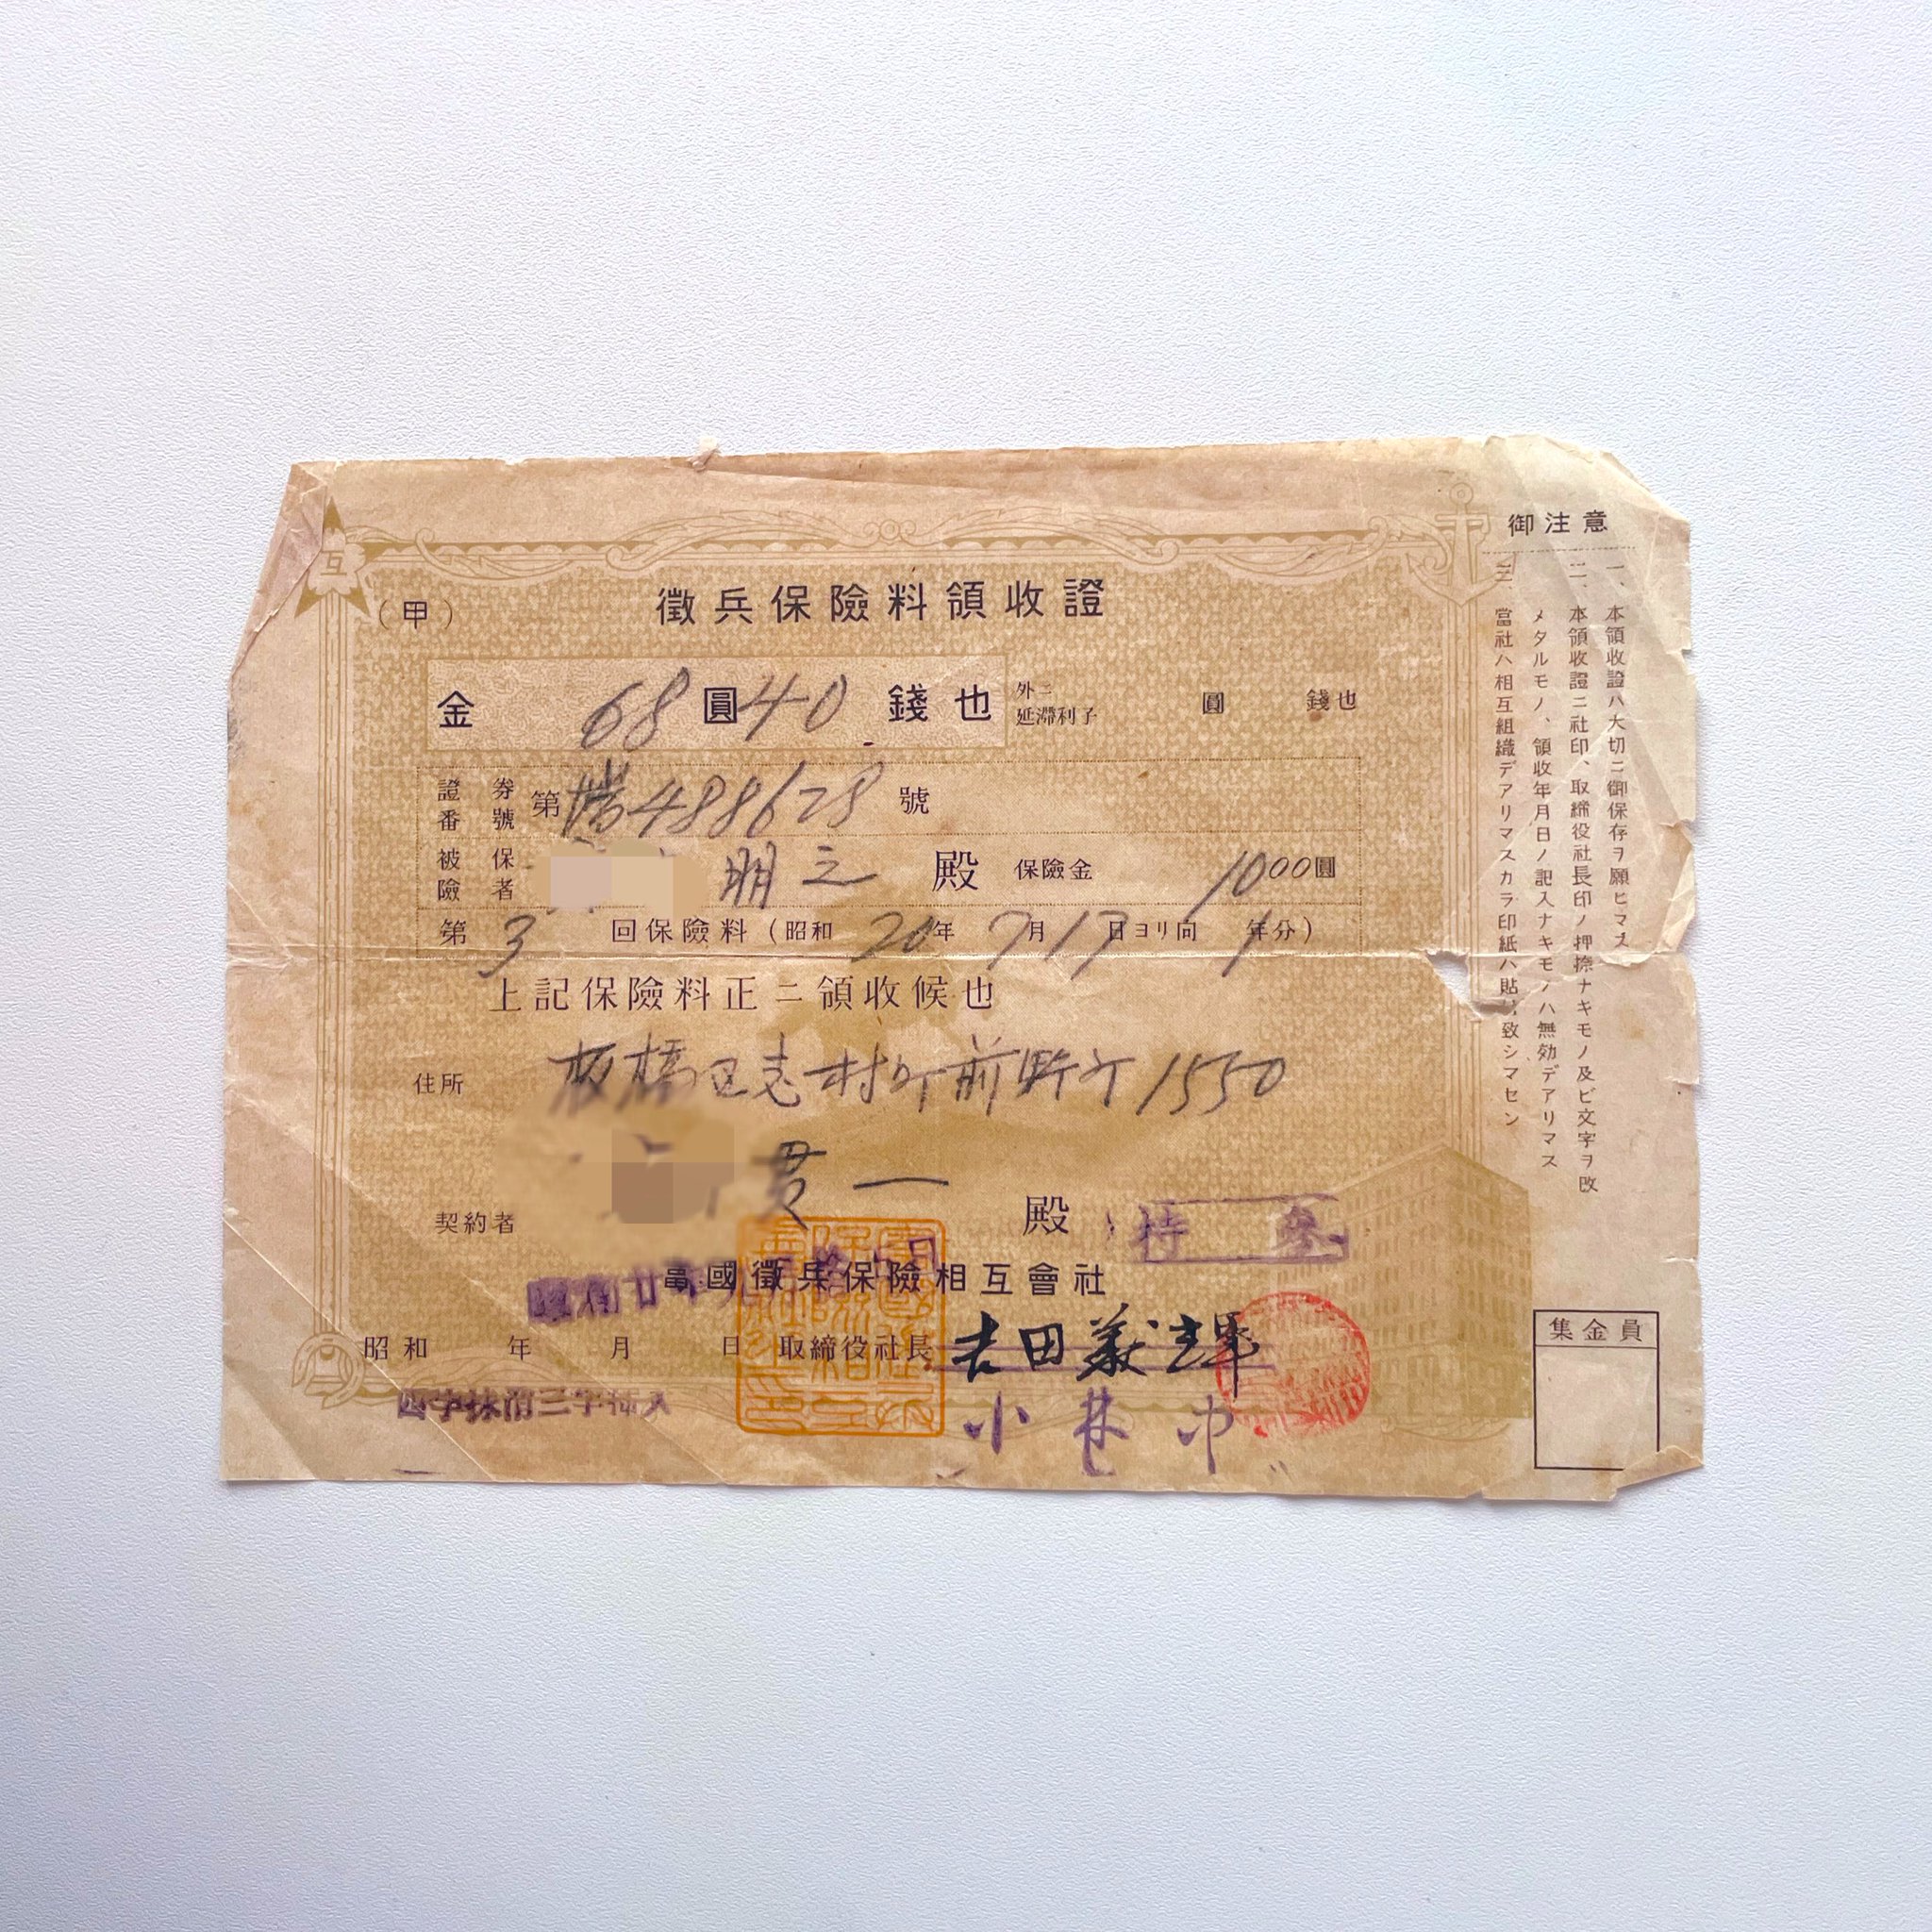 互
(甲)
徵兵保險料領收證
金 68圓40錢也
外ニ
延滯利子 圓 錢也
證券
番號 第 488678 號
被保
險者 明之 殿 保險金 1000圓
第3回保險料(昭和20年7月17日ヨリ向1年分)
上記保險料正ニ領收候也
住所 板橋区志村町前野町1550
契約者 貫一 殿
持參
富國徵兵保險相互會社
昭和 年 月 日 取締役社長 吉田義輝
四字抹消三字挿入
小林
御注意
一、本領收證ハ大切ニ御保存ヲ願ヒマス
二、本領收證ニ社印、取締役社長印ノ押捺ナキモノ及ビ文字ヲ改
メタルモノ、領收年月日ノ記入ナキモノハ無効デアリマス
三、當社ハ相互組織デアリマスカラ印紙ハ貼付致シマセン
集金員